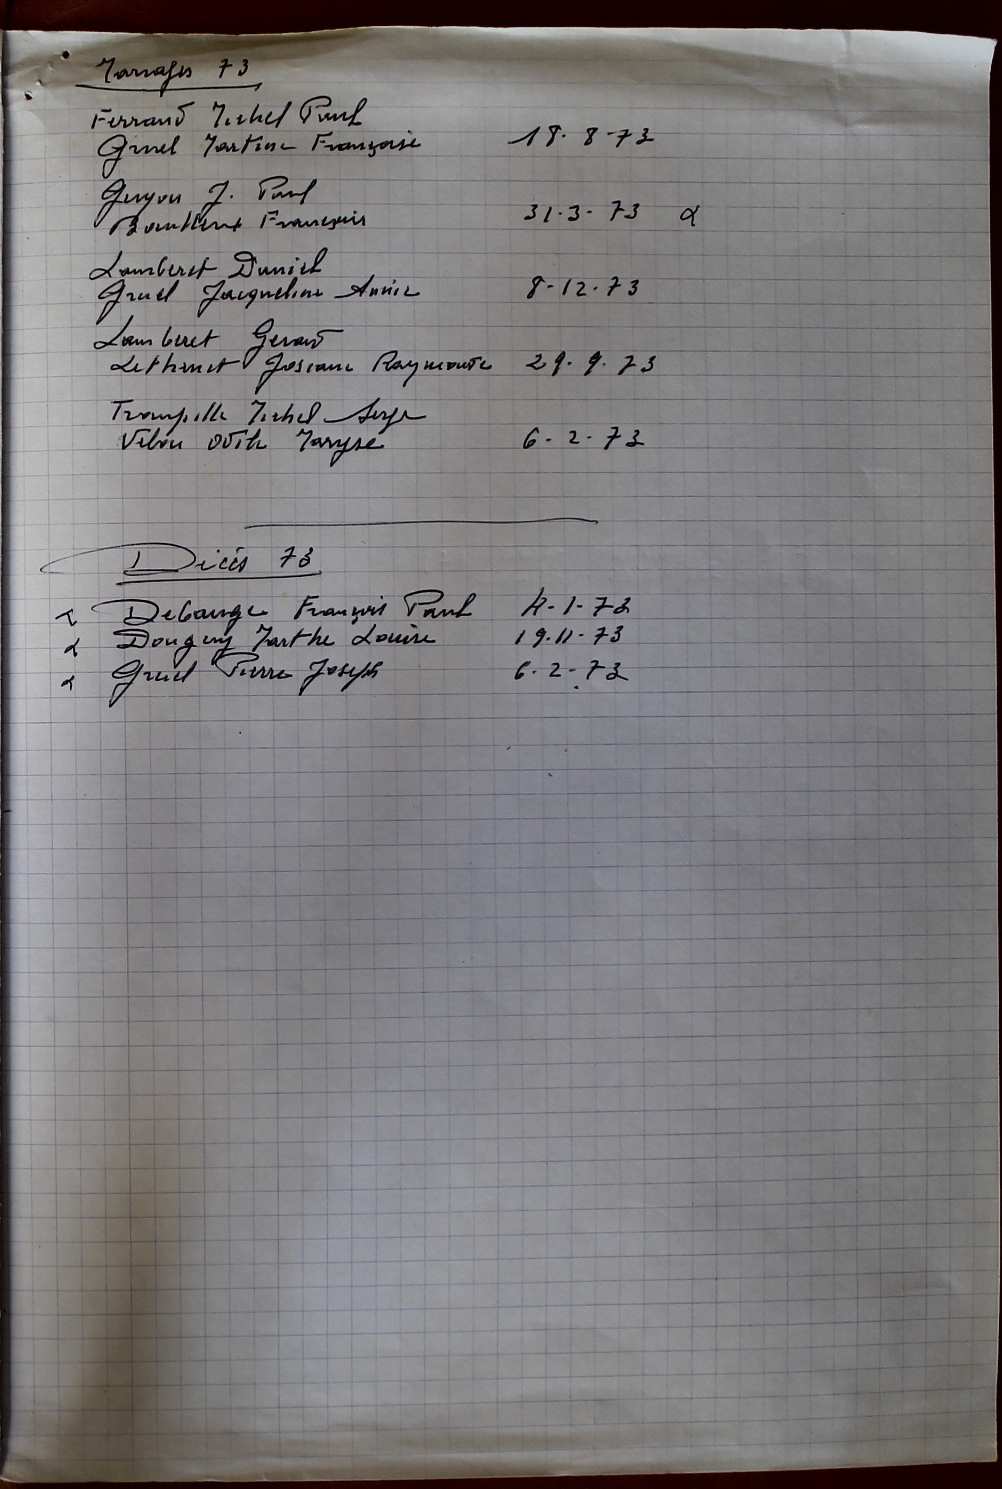 Mariages 73
Ferrand Michel Paul
Gruel Martine Françoise 18-8-73
Guyon J. Paul
Françoise 31-3-73 α
Lamberet Daniel
Gruel Jacqueline Annie 8-12-73
Lamberet Gerard
Lethenet Josiane Raymonde 29-9-73
Michel Serge
Odile Maryse 6-2-73
Décés 73
α Debauge François Paul 4-1-73
α Marthe Louise 19-11-73
α Gruel Pierre Joseph 6-2-73